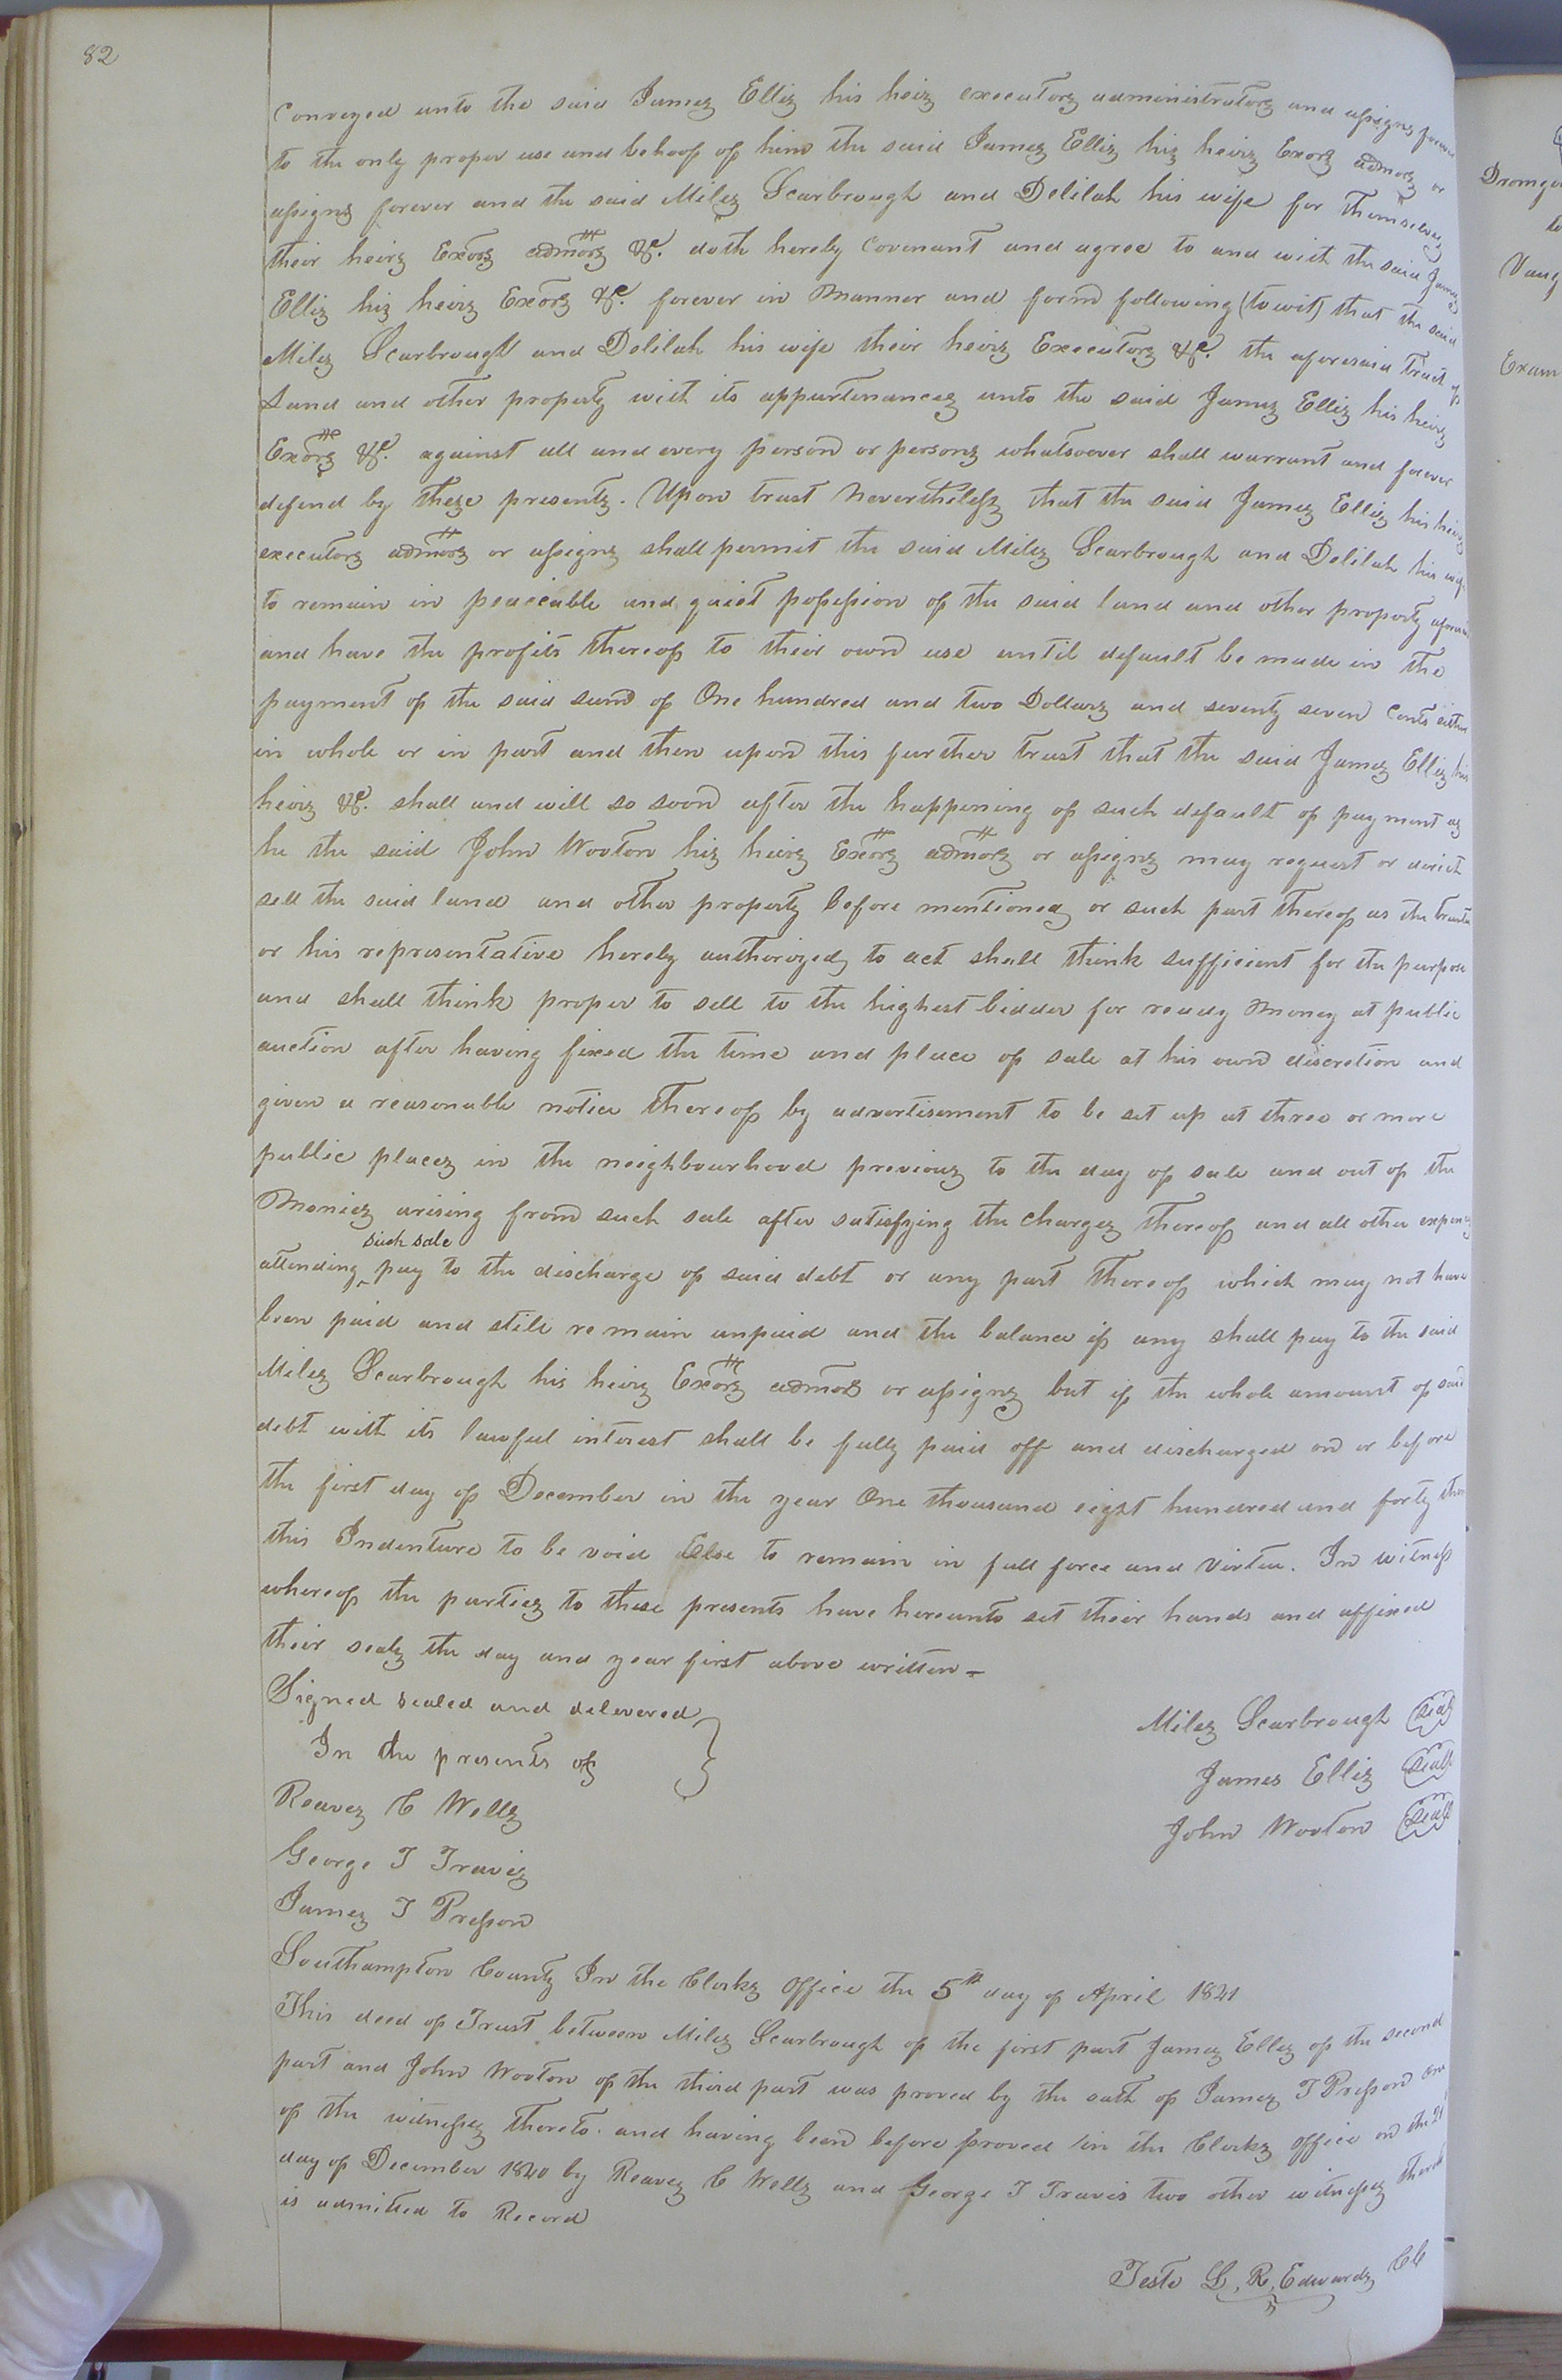 82
Conveyed unto the said James Ellis his heirs executors administrators and assigns forever
to the only proper use and behoof of him the said James Ellis his heirs Exors admors or
assigns forever and the said Miles Scarbrough and Delilah his wife for themselves
their heirs Exors admors &c. doth hereby Covenant and agree to and with the said James
Ellis his heirs Exors &c. forever in manner and form following (to wit) that the said
Miles Scarbrough and Delilah his wife their heirs Executors &c. the aforesaid tract of
Land and other property with its appurtenances unto the said James Ellis his heirs
Exors &c. against all and every person or persons whatsoever shall warrant and forever
defend by these presents. Upon trust Nevertheless that the said James Ellis his heirs
executors admors or assigns shall permit the said Miles Scarbrough and Delilah his wife
to remain in peaceable and quiet possession of the said land and other property aforesaid
and have the profits thereof to their own use until default be made in the
payment of the said sum of One hundred and two Dollars and seventy seven Cents either
in whole or in part and then upon this further trust that the said James Ellis his
heirs &c. shall and will so soon after the happening of such default of payment as
he the said John Wooton his heirs Exors admors or assigns may request or direct
sell the said land and other property before mentioned or such part thereof as the trustee
or his representative hereby authorized to act shall think sufficient for the purpose
and shall think proper to sell to the highest bidder for ready money at public
auction after having fixed the time and place of sale at his own discretion and
given a reasonable notice thereof by advertisement to be set up at three or more
public places in the neighbourhood previous to the day of sale and out of the
Monies arising from such sale after satisfying the charges thereof and all other expenses
such sale
attending pay to the discharge of said debt or any part thereof which may not have
been paid and still remain unpaid and the balance if any shall pay to the said
Miles Scarbrough his heirs Exors admors or assigns but if the whole amount of said
debt with its lawful interest shall be fully paid off and discharged on or before
the first day of December in the year One thousand eight hundred and forty then
this Indenture to be void Else to remain in full force and Virtue. In witness
whereof the parties to these presents have hereunto set their hands and affixed
their seals the day and year first above written –
Signed sealed and delevered
In the presents of
Miles Scarbrough Seal
James Ellis Seal
John Wooton Seal
Reaves C Wells
George T Travis
James T Presson
Southampton County In the Clerks Office the 5th day of April 1841
This deed of Trust between Miles Scarbrough of the first part James Ellis of the second
part and John Wooton of the third part was proved by the oath of James T Presson one
of the witnesses thereto and having been before proved in the Clerks office on the 21
day of December 1840 by Reaves C Wells and George T Travis two other witnesses thereto
is admitted to Record
Teste L. R. Edwards CC
Vaug
Exam